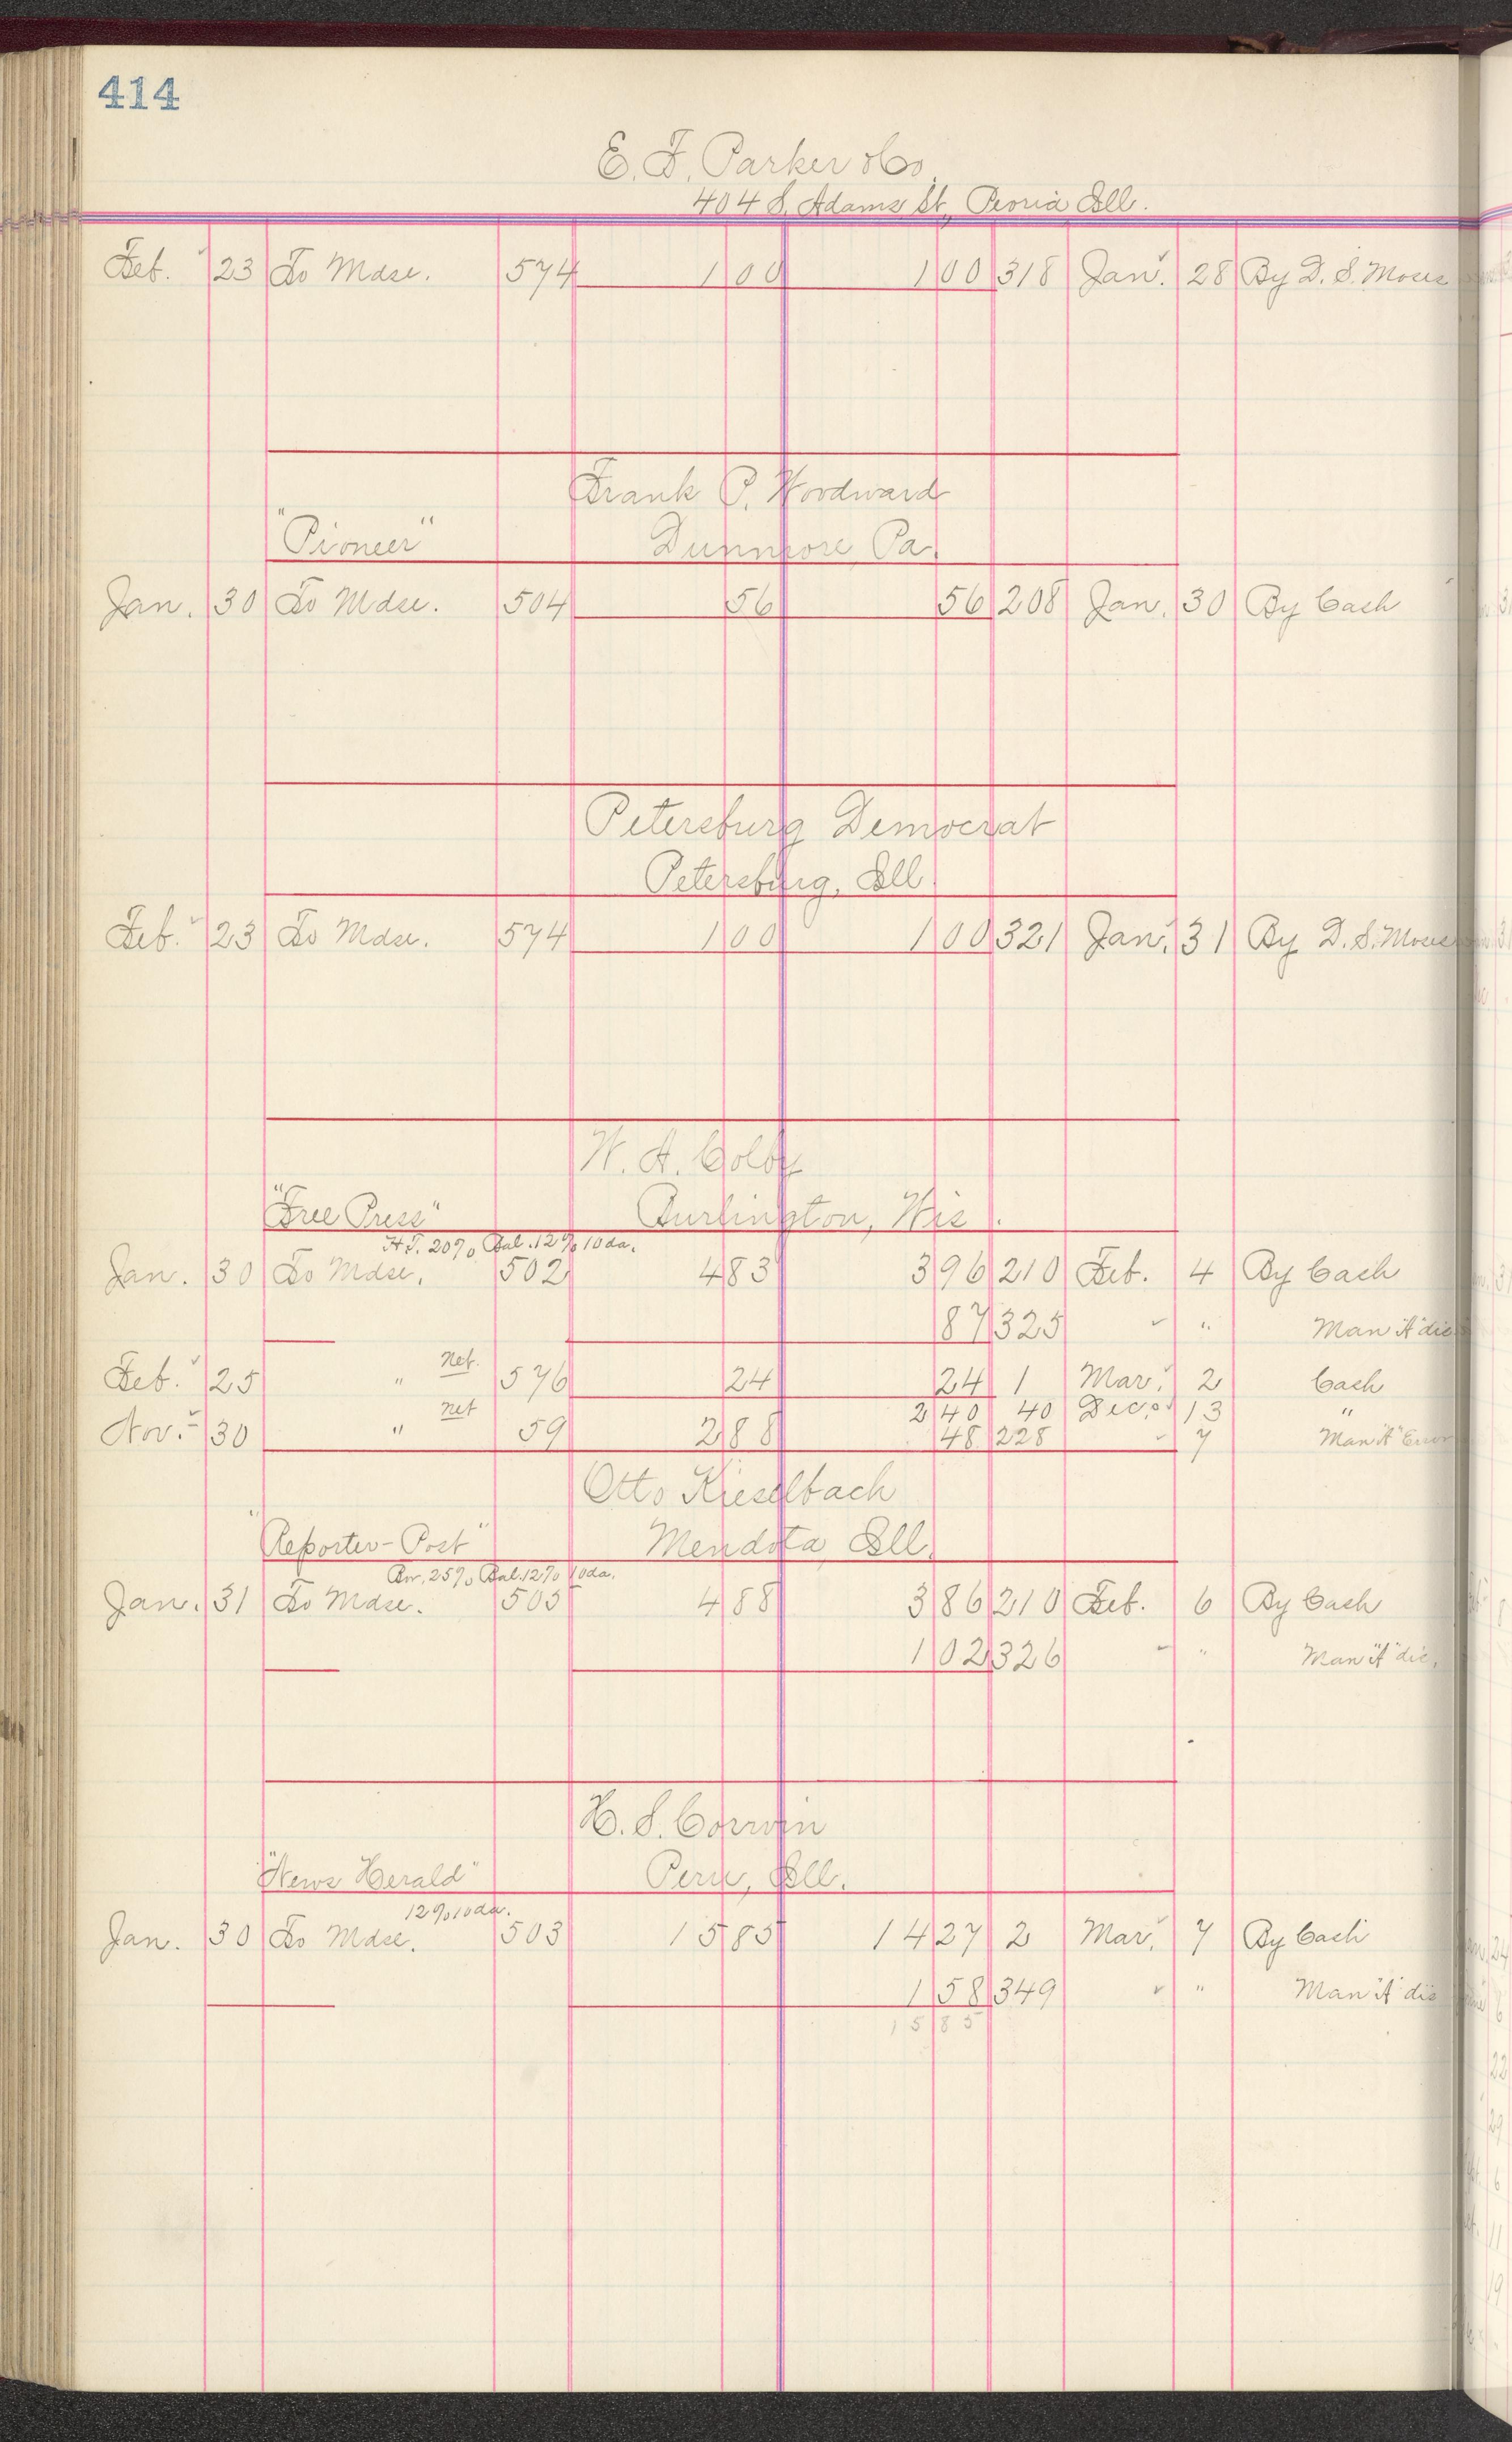 414
E. F. Parker & Co.
404 S. Adams St., Peoria Ill.
Feb. 23 To Mdse. 574 1 00 1 00 318 Jan. 28 By D. S. Moses
Frank P. Woodward
"Pioneer" Dunmore, Pa.
Jan. 30 To Mdse. 504 56 56 208 Jan. 30 By Cash
Petersburg Democrat
Petersburg, Ill.
Feb. 23 To Mdse. 574 1 00 1 00 321 Jan. 31 By D. S. Moses
W. A. Colby
"Free Press" Burlington, Wis.
H.T. 20% Bal. 12% 10 da.
Jan. 30 To Mdse. 502 4 83 3 96 210 Feb. 4 By Cash
87 325 " " Man "A" dis
Feb. 25 " Net. 576 24 24 1 Mar. 2 Cash
2 40 40 Dec. 13 "
Nov. 30 " Net 59 2 88 48 228 " 7 Man "A" Error
Otto Kieselbach
"Reporter-Post" Mendota, Ill.
Bor. 25% Bal. 12% 10 da.
Jan. 31 To Mdse. 505 4 88 3 86 210 Feb. 6 By Cash
1 02 326 " " Man "A" dis.
H. S. Corwin
"News Herald" Peru, Ill.
12% 10 da.
Jan. 30 To Mdse. 503 15 85 14 27 2 Mar. 7 By Cash
1 58 349 " " Man "A" dis
15 85